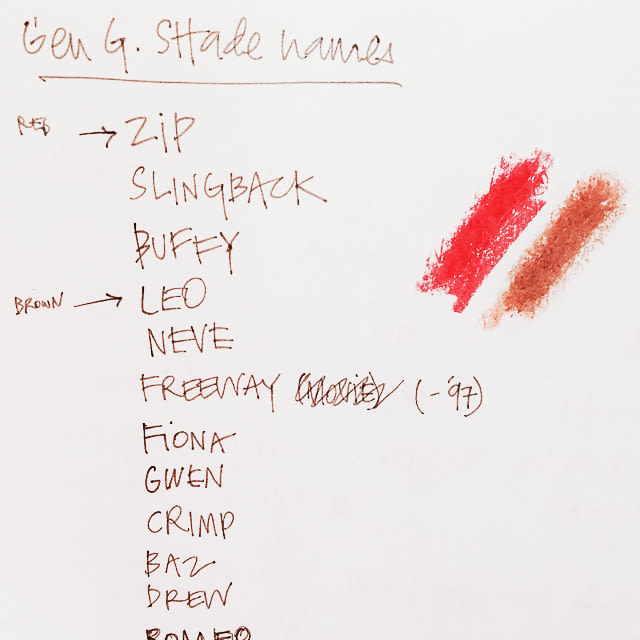 Gen G. Shade names
RED → ZIP
SLINGBACK
BUFFY
BROWN → LEO
NEVE
FREEWAY (-'97)
FIONA
GWEN
CRIMP
BAZ
DREW
ROMEO